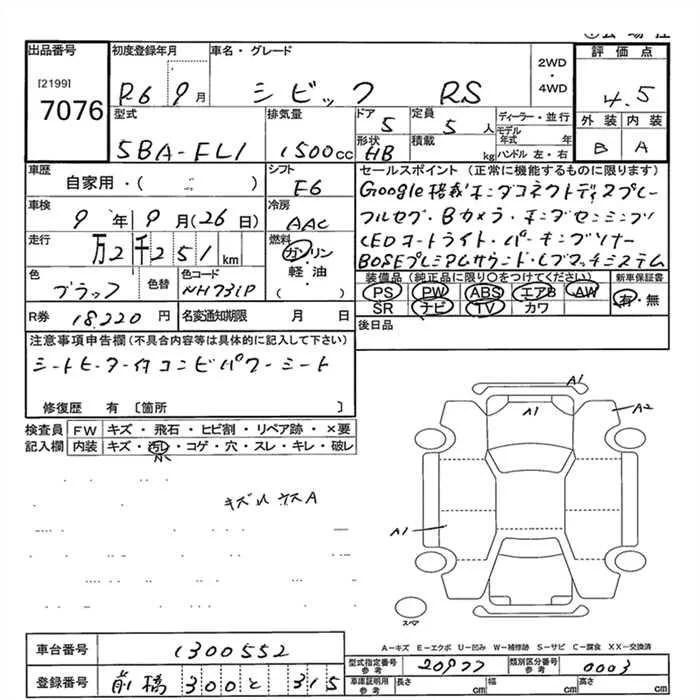 出品番号
[2199]
7076
初度登録年月
R6 9月
車名・グレード
シビック RS
2WD
・
4WD
評価点
4.5
外装 内装
B A
型式
5BA-FL1
排気量
1500cc
ドア
5
定員
5人
形状
HB
積載
kg
ディーラー・並行
モデル年式 年
ハンドル 左・右
車歴
自家用・( )
シフト
F6
車検
9年9月(26日)
冷房
AAC
走行
万2千251km
燃料
ガソリン
軽油
( )
色
ブラック
色替
色コード
NH731P
R券 18,220円
名変通知期限 月 日
セールスポイント(正常に機能するものに限ります)
Google搭載ホンダコネクトディスプレー
フルセグ・Bカメラ・ホンダセンシング
LEDヘッドライト・パーキングソナー
BOSEプレミアムサウンド・
装備品(純正品に限り○をつけてください)
PS PW ABS エアB AW
SR ナビ TV カワ
新車保証書
有・無
後日品
注意事項申告欄(不具合内容等は具体的に記入して下さい)
シートヒーター付コンビパワーシート
修復歴 有 〔箇所 〕
検査員記入欄
FW キズ・飛石・ヒビ割・リペア跡・×要
内装 キズ・汚れ・コゲ・穴・スレ・キレ・破レ
キズ ウスA
A1
A1
A2
A1
スペア
A-キズ E-エクボ U-凹み W-補修跡 S-サビ C-腐食 XX-交換済
車台番号 1300552
登録番号 前橋 300 と 315
型式指定番号 参考 20977
類別区分番号 参考 0003
車庫証明用 参考 長さ cm 幅 cm 高さ cm